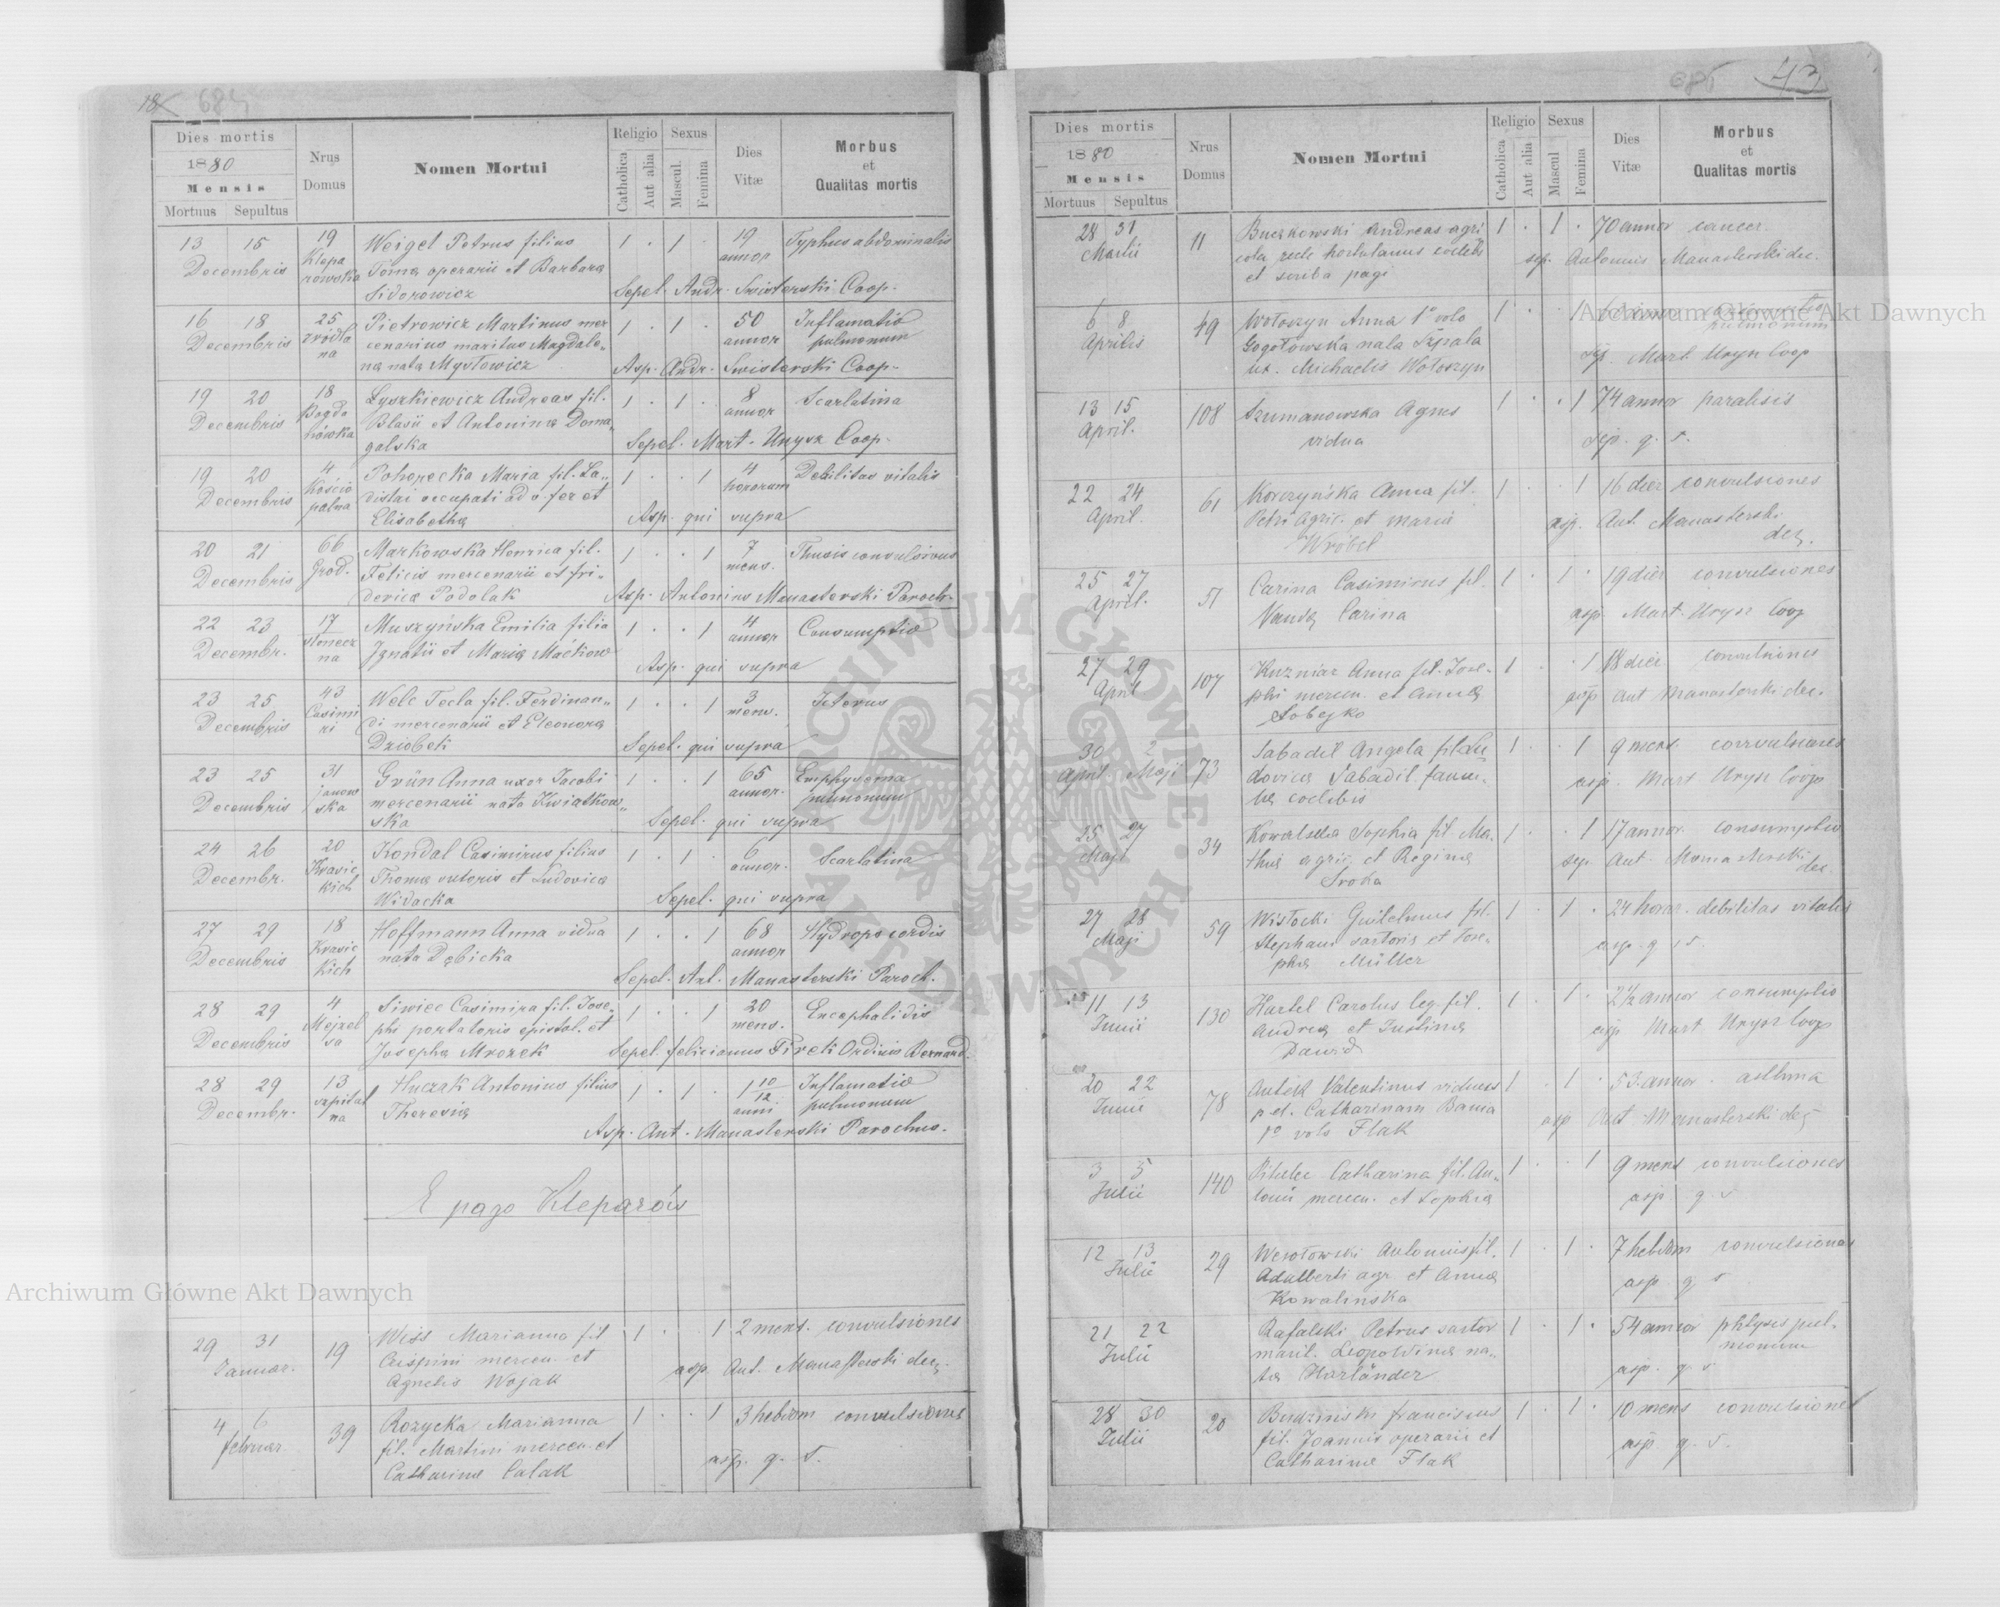 18
684
Dies mortis
1880
Mensis
Mortuus Sepultus
Nrus Domus
Nomen Mortui
Religio
Catholica
Aut alia
Sexus
Mascul.
Femina
Dies Vitæ
Morbus et Qualitas mortis
13 15 19 Weigel Petrus filius 1 · 1 · 19 Typhus abdominalis
Decembris Klepa Tomæ operarii et Barbaræ annor
rowska Sidorowicz Sepel. Andr. Swisterski Coop.
16 18 25 Pietrowicz Martinus mer 1 · 1 · 50 Inflamatio
Decembris źródla cenarius maritus Magdale- annor pulmonum
na næ nata Mysłowicz Asp. Andr. Swisterski Coop.
19 20 18 Lyszkiewicz Andreas fil. 1 · 1 · 8 Scarlatina
Decembris Bogda Blasii et Antoninæ Doma annor
nówka galska Sepel. Mart. Unysz Coop.
19 20 4 Pohorecka Maria fil. La- 1 · · 1 4 Debilitas vitalis
Decembris Kościo dislai occupati ad v. fer et horarum
palna Elisabethæ Asp. qui supra
20 21 66 Markowska Henrica fil. 1 · · 1 7 Thusis convulsivus
Decembris Grod. Felicis mercenarii et fri- mens.
dericæ Podolak Asp. Antonius Manasterski Paroch.
22 23 17 Muszyńska Emilia filia 1 · · 1 4 Consumptio
Decembr. słonecz Ignatii et Mariæ Maćkow annor
na Asp. qui supra
23 25 43 Welc Tecla fil. Ferdinan- 1 · · 1 3 Icterus
Decembris Casimi di mercenarii et Eleonoræ mens.
ri Dziobek Sepel. qui supra
23 25 31 Grün Anna uxor Jacobi 1 · · 1 65 Emphysema
Decembris janow mercenarii nata Kwiatkow- annor. pulmonum
ska ska Sepel. qui supra
24 26 20 Kondal Casimirus filius 1 · 1 · 6 Scarlatina
Decembr. Kravic Thomæ sutoris et Ludovicæ annor.
kich Widacka Sepel. qui supra
27 29 18 Hoffmann Anna vidua 1 · · 1 68 Hydrops cordis
Decembris Kravic nata Dębicka annor
kich Sepel. Ant. Manasterski Paroch.
28 29 4 Siwiec Casimira fil. Jose- 1 · · 1 20 Encephalidis
Decembris Mejzel phi portatoris epistol. et mens.
sa Josephæ Mrozek Sepel. felicianus Firek Ordinis Bernard.
28 29 13 Huczak Antonius filius 1 · 1 · 1 10/12 Inflamatio
Decembr. szpital Theresiæ anni pulmonum
na Asp. Ant. Manasterski Parochus.
E pago Kleparów
29 31 19 Weiss Marianna fil 1 · 1 2 mens. convulsiones
Januar. Crispini mercen. et asp. Ant. Manasterski dec.
Agnetis Wojak
4 6 39 Rozycka Marianna 1 · · 1 3 hebdom convulsiones
februar fil. Martini mercen. et
Catharinæ Calak asp. q. s.
43
Dies mortis
1880
Mensis
Mortuus Sepultus
Nrus Domus
Nomen Mortui
Religio
Catholica
Aut alia
Sexus
Mascul
Femina
Dies Vitæ
Morbus et Qualitas mortis
28 31 11 Buczkowski Andreas agri 1 · 1 · 70 annor cancer.
Martii cola recte hortulanus coelebs sep. Antonius Manasterski dec.
et scriba pagi
6 8 49 Wołoszyn Anna 1º voto 1 · · 1
Aprilis Gogołowska nata Szpala pulmonum
ux. Michaelis Wołoszyn sep. Mart Unysz Coop
13 15 108 Szumanowska Agnes 1 · · 1 74 annor paralisis
April. vidua sep. q. s.
22 24 61 Korczyńska Anna fil. 1 · · 1 16 dier convulsiones
April. Petri agric. et Mariæ asp. Ant. Manasterski
Wróbel dec.
25 27 51 Carina Casimirus fil. 1 · 1 · 19 dier convulsiones
April. Vandæ Carina asp. Mart. Unysz Coop
27 29 107 Kuzniar Anna fil. Jose- 1 · · 1 18 dier convulsiones
April phi mercen. et Annæ asp Ant Manasterski dec.
Sobejko
30 2 73 Sabadil Angela fil Lu- 1 · · 1 9 mens. convulsiones
April Maji dovicæ Sabadil famu- asp. Mart Unysz Coop
læ coelibis
25 27 34 Kowalska Sophia fil Ma- 1 · · 1 17 annor. consumptio
Maji thiæ agric. et Reginæ sep. Ant. Manasterski
Sroka dec.
27 28 59 Wisłocki Guilelmus fil. 1 · 1 · 24 horar. debilitas vitalis
Maji Stephani sartoris et Jose- asp. q. s.
phæ Müller
11 13 130 Hartel Carolus leg. fil. 1 · 1 · 2½ annor consumptio
Junii Andreæ et Justinæ asp Mart Unysz Coop
Dawid
20 22 78 Antek Valentinus viduus 1 · 1 · 53 annor. asthma
Junii p. et. Catharinam Bania asp Ant Manasterski dec
1º voto Flak
3 5 140 Catharina fil. An- 1 · · 1 9 mens convulsiones
Julii tonii mercen. et Sophiæ asp. q. s
12 13 29 Wesołowski Antonius fil. 1 · 1 · 7 hebdom convulsiones
Julii Adalberti agr. et Annæ asp. q. s
Kowalinska
21 22 Rafalski Petrus sartor 1 · 1 · 54 annor phtysis pul-
Julii marit. Leopoldinæ na- monum
tæ Harländer asp. q. s
28 30 20 Budzinski franciscus 1 · 1 · 10 mens convulsiones
Julii fil. Joannis operarii et asp q. s.
Catharinæ Flak
Archiwum Główne Akt Dawnych
Archiwum Główne Akt Dawnych
ARCHIWUM GŁÓWNE AKT DAWNYCH